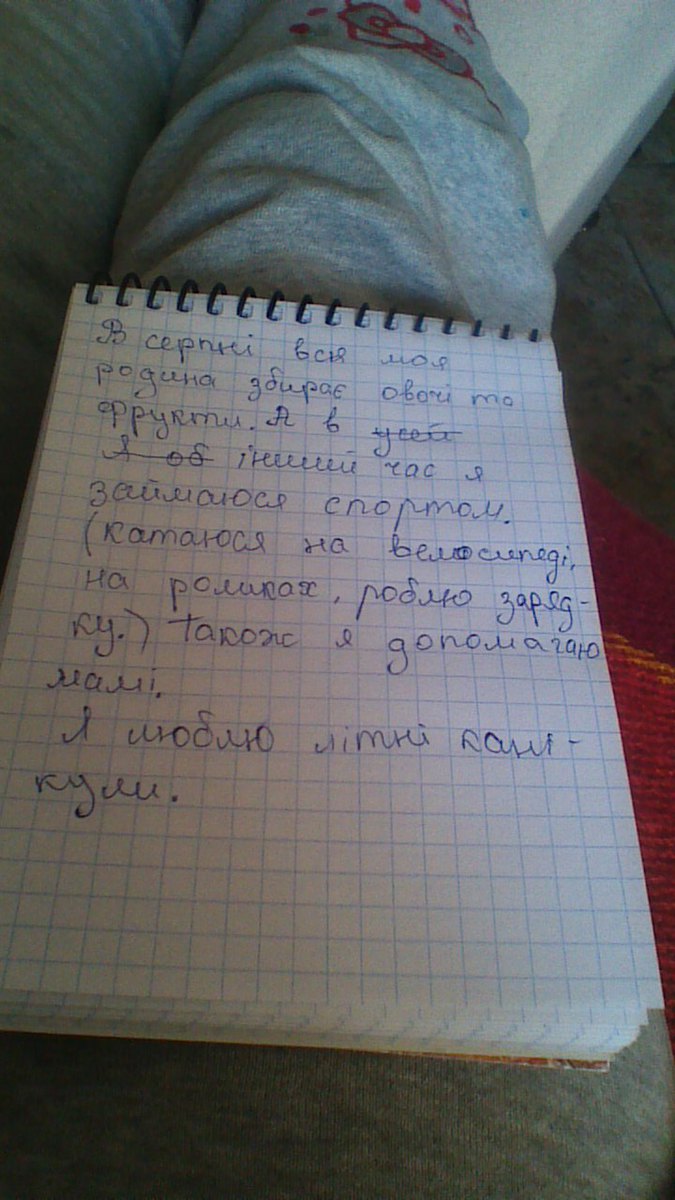 В серпні вся моя
родина збирає овочі та
фрукти. А в усей
Я об інший час я
займаюся спортом.
(катаюся на велосипеді,
на роликах, роблю заряд-
ку.) Також я допомагаю
мамі.
Я люблю літні кані-
кули.